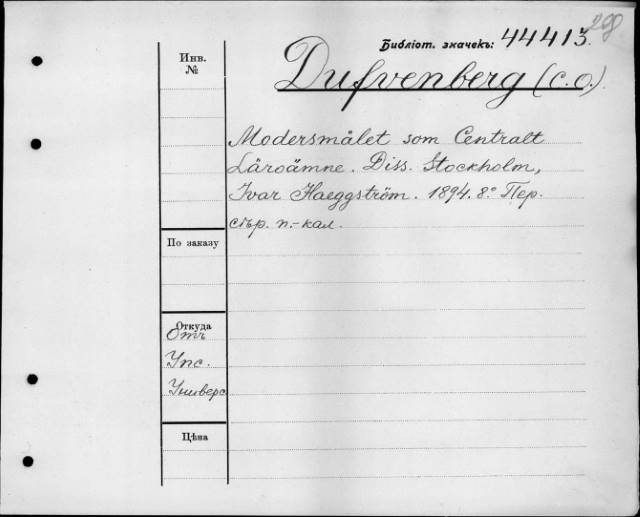 298
Библіот. значекъ: 44413.
Инв.
№
Dufvenberg (C.O.).
Modersmålet som Centralt
Läroämne. Diss. Stockholm,
Ivar Haeggström. 1894. 8º Пер.
сѣр. п.-кал.
По заказу
Откуда
Отъ
Упс.
Универс
Цѣна